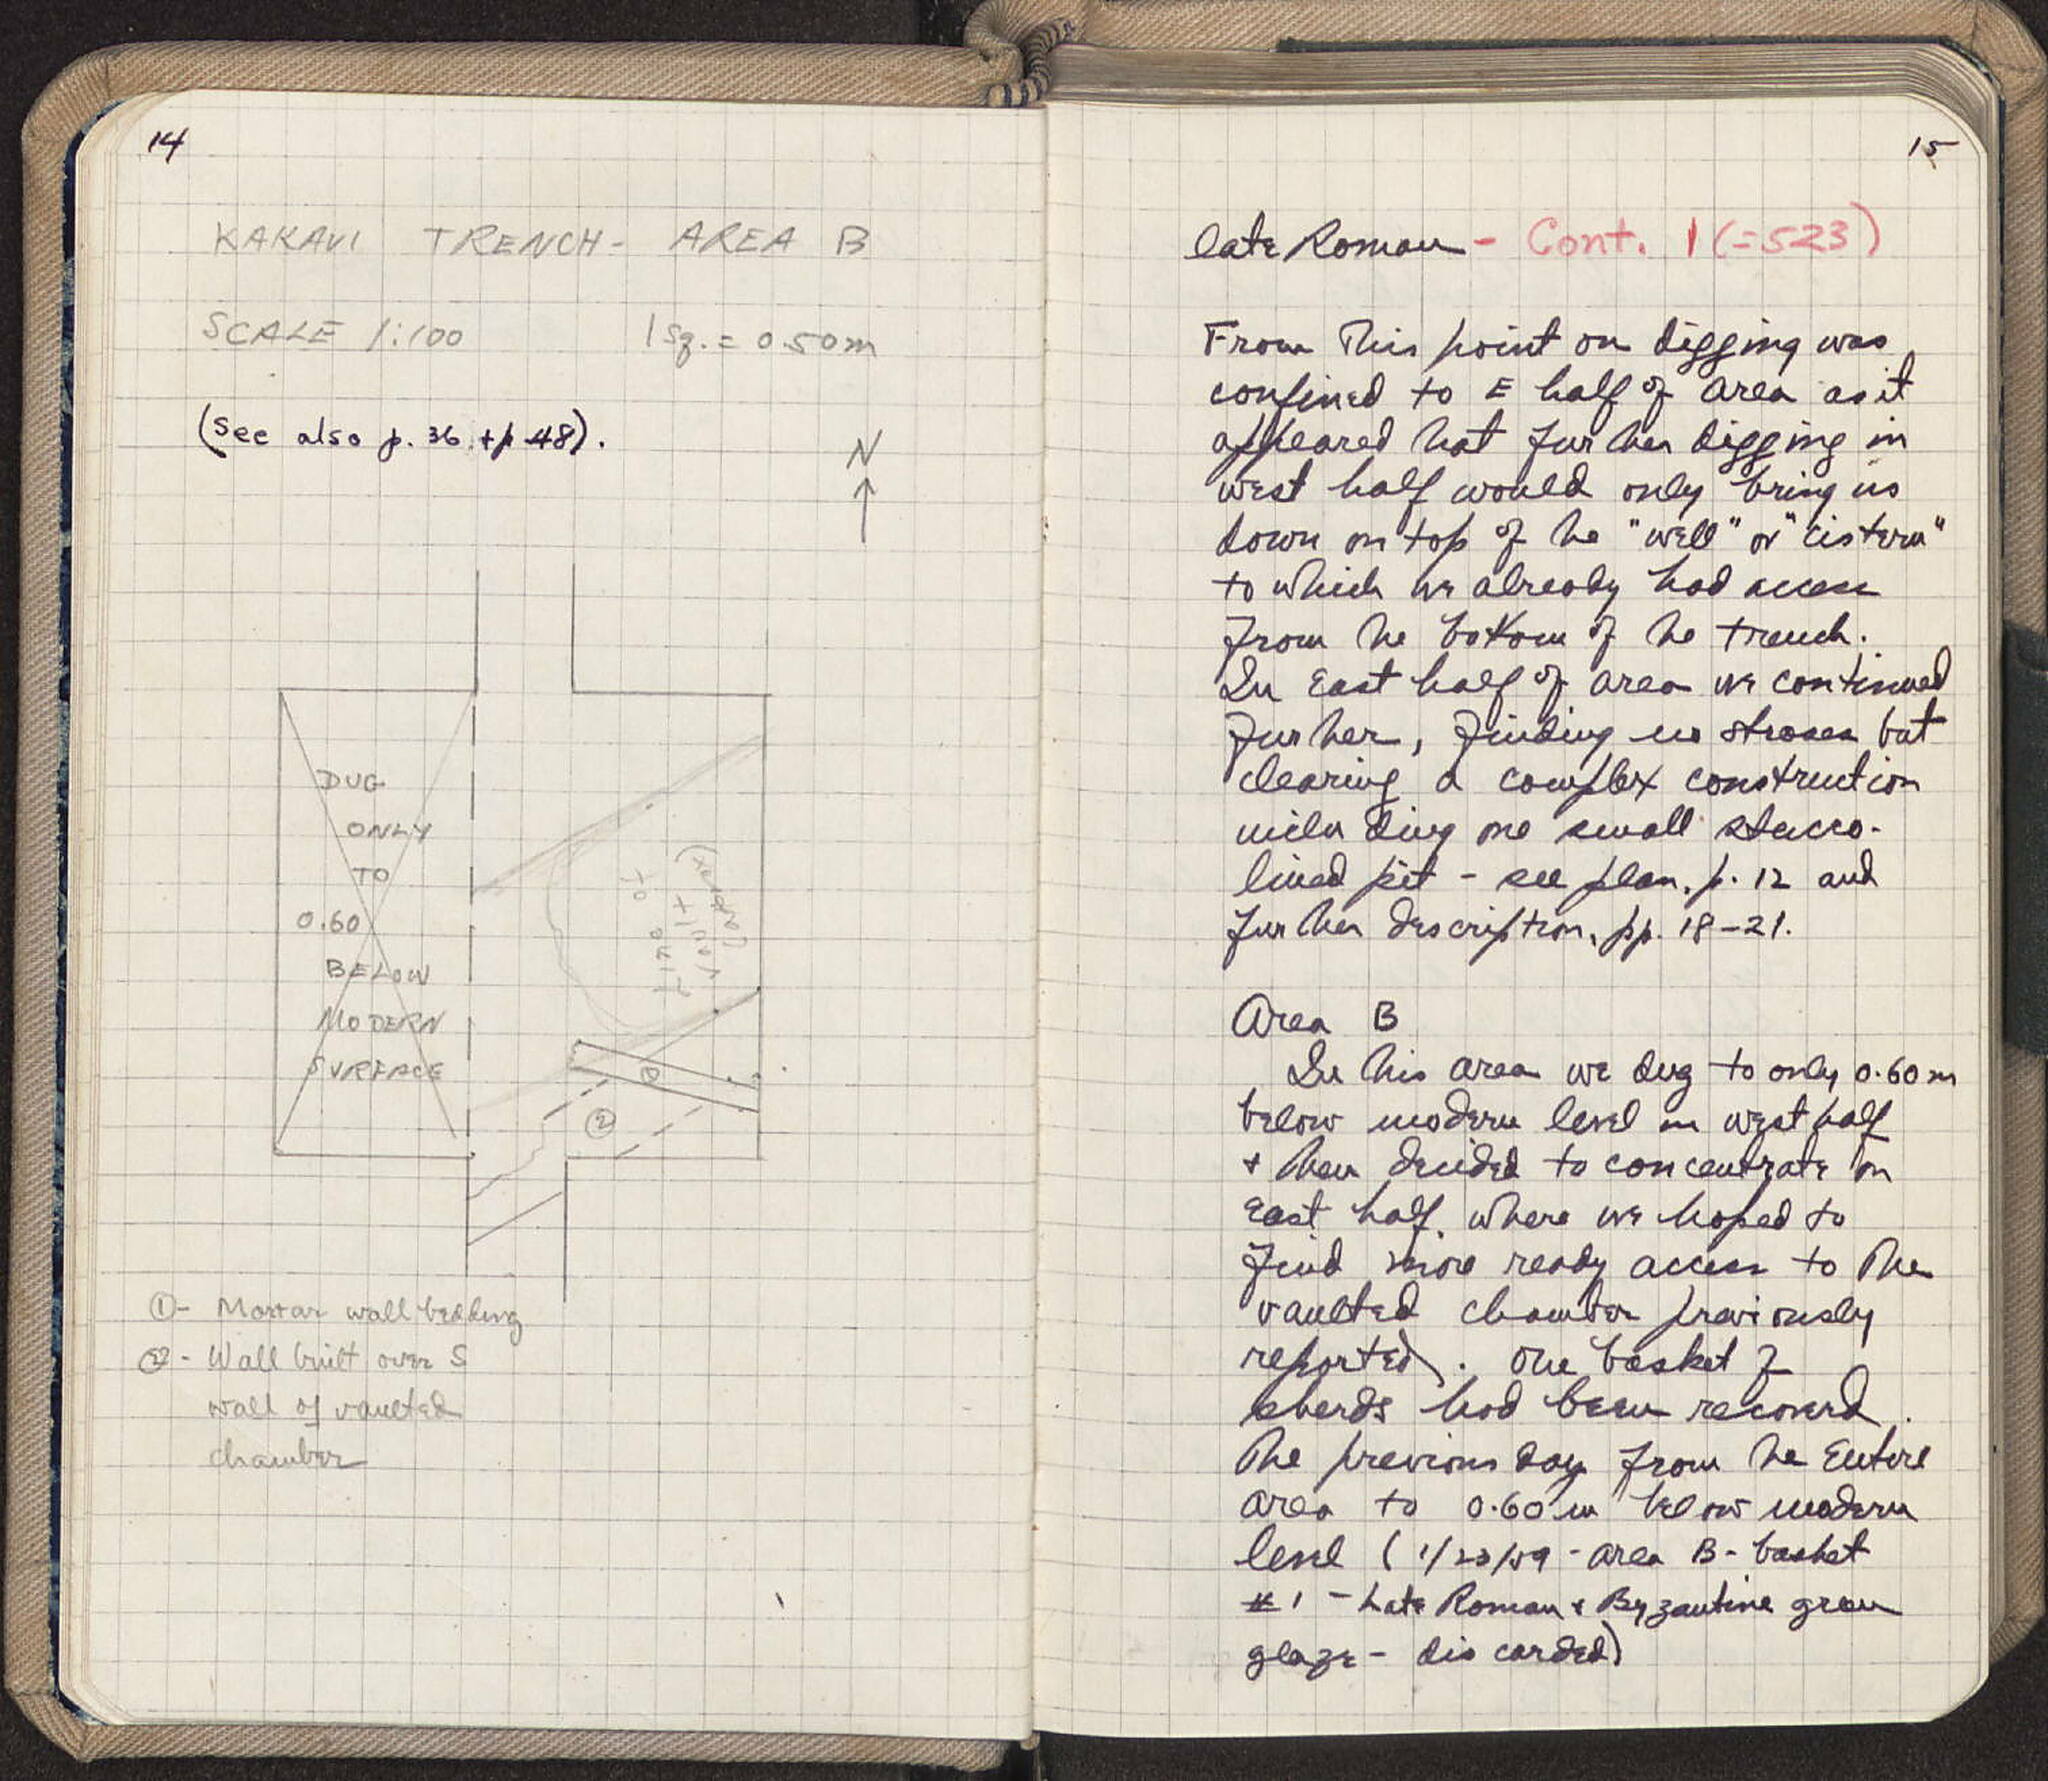 14
KAKAVI TRENCH - AREA B
SCALE 1:100 1 Sq. = 0.50m
(see also p. 36 + p 48).
N
DUG
ONLY
TO
0.60
BELOW
MODERN
SURFACE
LINE
OF
VAULT
(approx)
①
②
①- Mortar wall bedding
②- Wall built over S
wall of vaulted
chamber
15
late Roman - Cont. 1 (=523)
From This point on digging was
confined to E half of area as it
appeared that further digging in
west half would only bring us
down on top of the "well" or "cistern"
to which we already had access
from the bottom of the trench.
In East half of area we continued
further, finding no stroses but
clearing a complex construction
including one small stucco-
lined pit - see plan, p. 12 and
further description, pp. 18-21.
Area B
In this area we dug to only 0.60m
below modern level in west half
+ then decided to concentrate on
East half where we hoped to
find more ready access to the
vaulted chamber previously
reported. One basket of
sherds had been recoverd
the previous day from the Entire
area to 0.60m below modern
level (1/23/59 - area B - basket
#1 - Late Roman + Byzantine green
glaze - discarded)